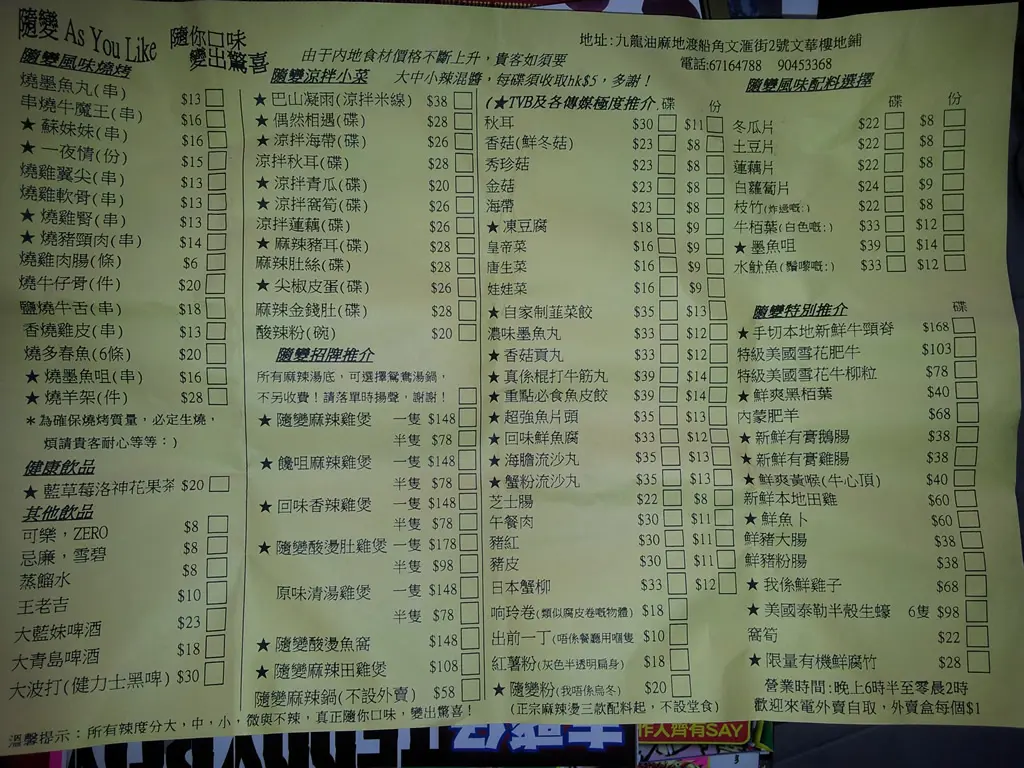 隨變 As You Like
隨你口味
變出驚喜
由于内地食材價格不斷上升，貴客如須要
大中小辣混醬，每碟須收取hk$5，多謝！
地址:九龍油麻地渡船角文滙街2號文華樓地鋪
電話:67164788 90453368
隨變風味燒烤
燒墨魚丸(串) $13
串燒牛魔王(串) $16
★ 蘇妹妹(串) $16
★ 一夜情(份) $15
燒雞翼尖(串) $13
燒雞軟骨(串) $13
★ 燒雞腎(串) $13
★ 燒豬頸肉(串) $14
燒雞肉腸(條) $6
燒牛仔骨(件) $20
鹽燒牛舌(串) $18
香燒雞皮(串) $13
燒多春魚(6條) $20
★ 燒墨魚咀(串) $16
★ 燒羊架(件) $28
＊為確保燒烤質量，必定生燒，
煩請貴客耐心等等：)
健康飲品
★ 藍草莓洛神花果茶 $20
其他飲品
可樂，ZERO $8
忌廉，雪碧 $8
蒸餾水 $8
王老吉 $10
大藍妹啤酒 $23
大青島啤酒 $18
大波打(健力士黑啤) $30
隨變涼拌小菜
★ 巴山凝雨(涼拌米線) $38
★ 偶然相遇(碟) $28
★ 涼拌海帶(碟) $26
涼拌秋耳(碟) $28
★ 涼拌青瓜(碟) $20
★ 涼拌窩筍(碟) $26
涼拌蓮藕(碟) $26
★ 麻辣豬耳(碟) $28
麻辣肚絲(碟) $28
★ 尖椒皮蛋(碟) $26
麻辣金錢肚(碟) $28
酸辣粉(碗) $20
隨變招牌推介
所有麻辣湯底，可選擇鴛鴦湯鍋，
不另收費！請落單時揚聲，謝謝！
★ 隨變麻辣雞煲 一隻 $148
半隻 $78
★ 饞咀麻辣雞煲 一隻 $148
半隻 $78
★ 回味香辣雞煲 一隻 $148
半隻 $78
★ 隨變酸燙肚雞煲 一隻 $178
半隻 $98
原味清湯雞煲 一隻 $148
半隻 $78
★ 隨變酸燙魚窩 $148
★ 隨變麻辣田雞煲 $108
隨變麻辣鍋(不設外賣) $58
(★TVB及各傳媒極度推介) 碟 份
秋耳 $30 $11
香菇(鮮冬菇) $23 $8
秀珍菇 $23 $8
金菇 $23 $8
海帶 $23 $8
★ 凍豆腐 $18 $9
皇帝菜 $16 $9
唐生菜 $16 $9
娃娃菜 $16 $9
★ 自家制韮菜餃 $35 $13
濃味墨魚丸 $33 $12
★ 香菇貢丸 $33 $12
★ 真係棍打牛筋丸 $39 $14
★ 重點必食魚皮餃 $39 $14
★ 超強魚片頭 $35 $13
★ 回味鮮魚腐 $33 $12
★ 海膽流沙丸 $35 $13
★ 蟹粉流沙丸 $35 $13
芝士腸 $22 $8
午餐肉 $30 $11
豬紅 $30 $11
豬皮 $30 $11
日本蟹柳 $33 $12
响玲卷(類似腐皮卷嘅物體) $18
出前一丁(唔係餐廳用嗰隻 $10
紅薯粉(灰色半透明扁身) $18
★ 隨變粉(我唔係烏冬) $20
(正宗麻辣燙三款配料起，不設堂食)
隨變風味配料選擇
碟 份
冬瓜片 $22 $8
土豆片 $22 $8
蓮藕片 $22 $8
白蘿蔔片 $24 $9
枝竹(炸過嘅:) $22 $8
牛栢葉(白色嘅:) $33 $12
★ 墨魚咀 $39 $14
水魷魚(鬚嚟嘅:) $33 $12
隨變特別推介 碟
★ 手切本地新鮮牛頸脊 $168
特級美國雪花肥牛 $103
特級美國雪花牛柳粒 $78
★ 鮮爽黑栢葉 $40
內蒙肥羊 $68
★ 新鮮有膏鵝腸 $38
★ 新鮮有膏雞腸 $38
★ 鮮爽黃喉(牛心頂) $40
新鮮本地田雞 $60
★ 鮮魚卜 $60
鮮豬大腸 $38
鮮豬粉腸 $38
★ 我係鮮雞子 $68
★ 美國泰勒半殼生蠔 6隻 $98
窩筍 $22
★ 限量有機鮮腐竹 $28
營業時間:晚上6時半至零晨2時
歡迎來電外賣自取，外賣盒每個$1
溫馨提示：所有辣度分大，中，小，微與不辣，真正隨你口味，變出驚喜！
作人齊有SAY